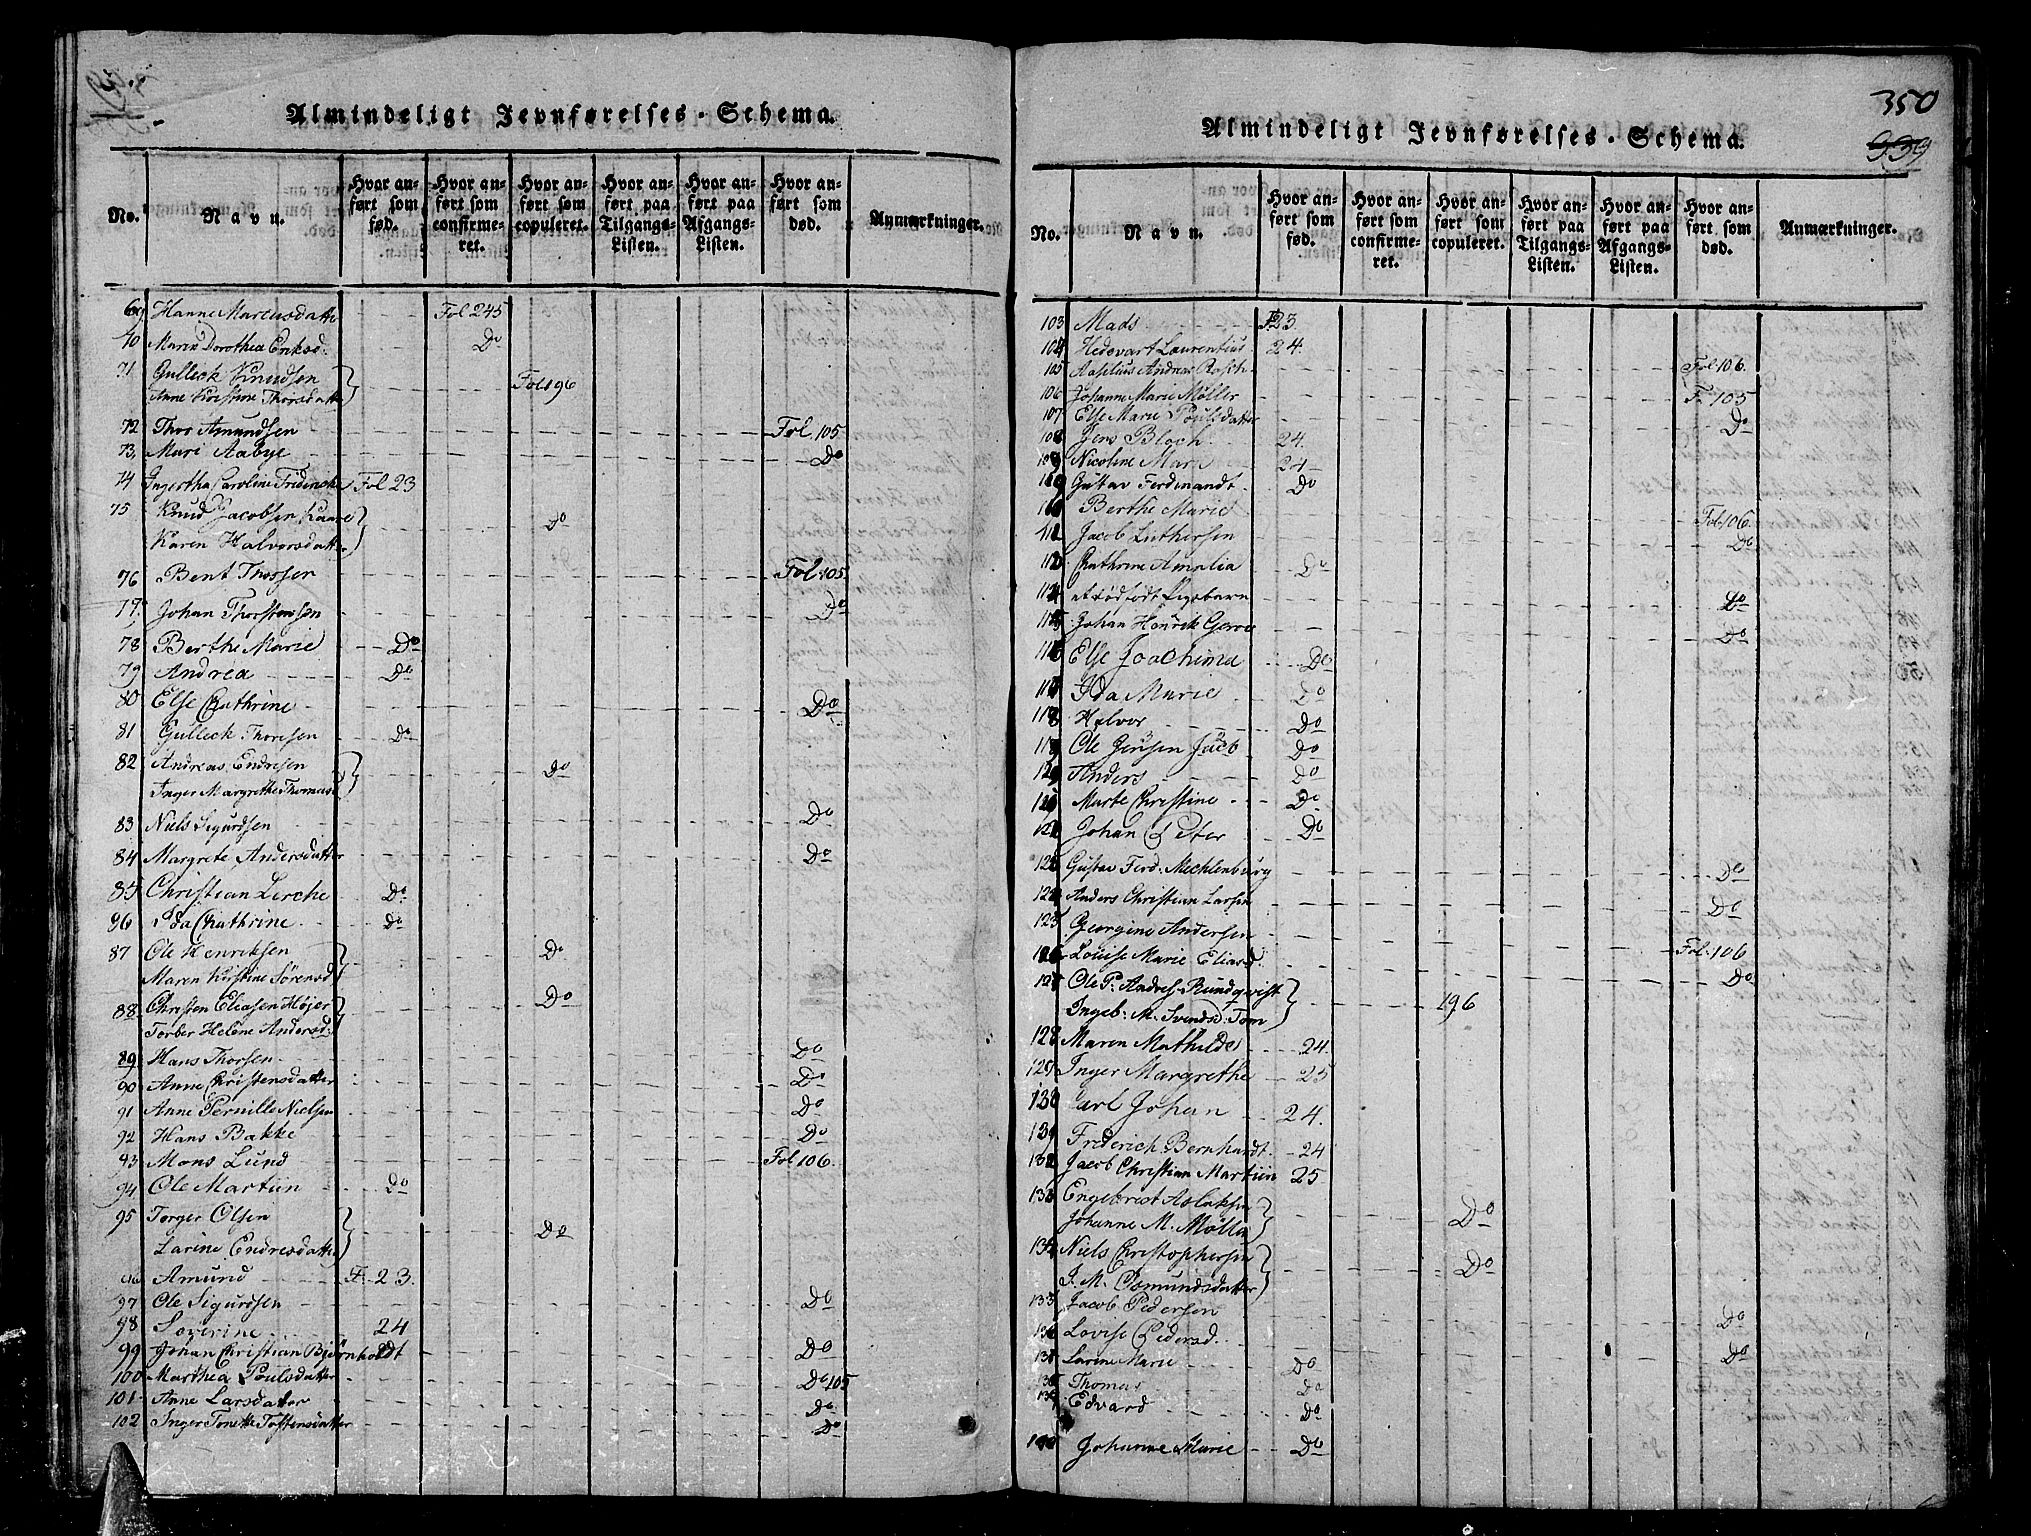 Almindeligt Jevnførelses-Schema.
No.
Navn.
Hvor anført som fød.
Hvor anført som confirmeret.
Hvor anført som copuleret.
Hvor anført paa Tilgangs-Listen.
Hvor anført paa Afgangs-Listen.
Hvor anført som død.
Anmærkninger.
69 Hanne Marcusdatte Fol 245
70 Maren Dorothea Eriksd. Do
71 Gulleck Knudsen
Anne Kirstine Thorsdatte Fol 196
72 Thor Amundsen Fol. 105
73, Mari Aabye Do
74 Ingertha Caroline Friderich Fol 23
75 Knud Jacobsen Kaare
Karen Halvorsdatter Do
76 Bent Thorsen Fol. 105
77. Johan Thorstensen Do
78 Berthe Marie Do
79 Andrea Do
80 Else Cathrine Do
81 Gulleck Thorsen Do
82 Andreas Endresen
Inger Margrethe Thomasd Do
83 Niels Sigurdsen Do
84 Margrete Andersdatter Do
85 Christian Lerche Do
86 Ida Cathrine Do
87 Ole Henriksen
Maren Kirstine Sörensd Do
88 Christen Eliasen Höjer
Torber Helene Andersd: Do
89 Hans Thorsen Do
90 Anne Christensdatter Do
91 Anne Pernille Nielsen Do
92 Hans Bakke Do
93 Mons Lund Fol 106.
94 Ole Martin Do
95 Torger Olsen
Larine Endresdatte Do
96 Amund F. 23.
97 Ole Sigurdsen Do
98 Soverine 24
99 Johan Christian Bjørnholdt Do
100 Marthea Poulsdatter Do 105
101 Anne Larsdatter Do
102 Inger Tonette Tostensdatter Do
350
339
Almindeligt Jevnførelses-Schema.
No.
Navn.
Hvor anført som fød.
Hvor anført som confirmeret.
Hvor anført som copuleret.
Hvor anført paa Tilgangs-Listen.
Hvor anført paa Afgangs-Listen.
Hvor anført som død.
Anmærkninger.
103 Mads F. 23.
104 Hedevart Laurentius 24.
105 Aaselius Andreas Rosch Fol 106.
106 Johanne Marie Møller F. 105
107 Else Marie Poulsdatter Do
108 Jens Bloch 24.
109 Nicoline Mari 24
Gustav Ferdinandt Do
Berthe Marie Fol. 106
Jacob Luthersen Do
Cathrine Amalia Do
et dødfødt Pigebarn Do
Johan Henrik Do
Else Joachima Do
Ida Marie Do
118 Halvor Do
119 Ole Jensen Jacob Do
Anders Do
Marte Christine Do
Johan Peter Do
Gustav Ferd: Mechlenburg Do
122 Anders Christian Larsen Do
123 Georgine Andersen Fol. 106
126 Louise Marie Eliasd. Do
127 Ole P. Andrs. Rundqvist
Ingeb: M. Svendsd: Tom 196
128 Maren Mathilde 24
129 Inger Margrethe 25
130 Carl Johan 24.
131 Frederich Bernhardt 24
132 Jacob Christian Martiin 25
133 Engebret Aslaksen
Johanne M. Mølla Do
134 Niels Christophersen
J. M. Osmundsdatter Do
135 Jacob Pedersen Do
136 Lovise Pedersd. Do
137 Larine Marie Do
138 Thomas Do
139 Edvard Do
140 Johanne Marie Do